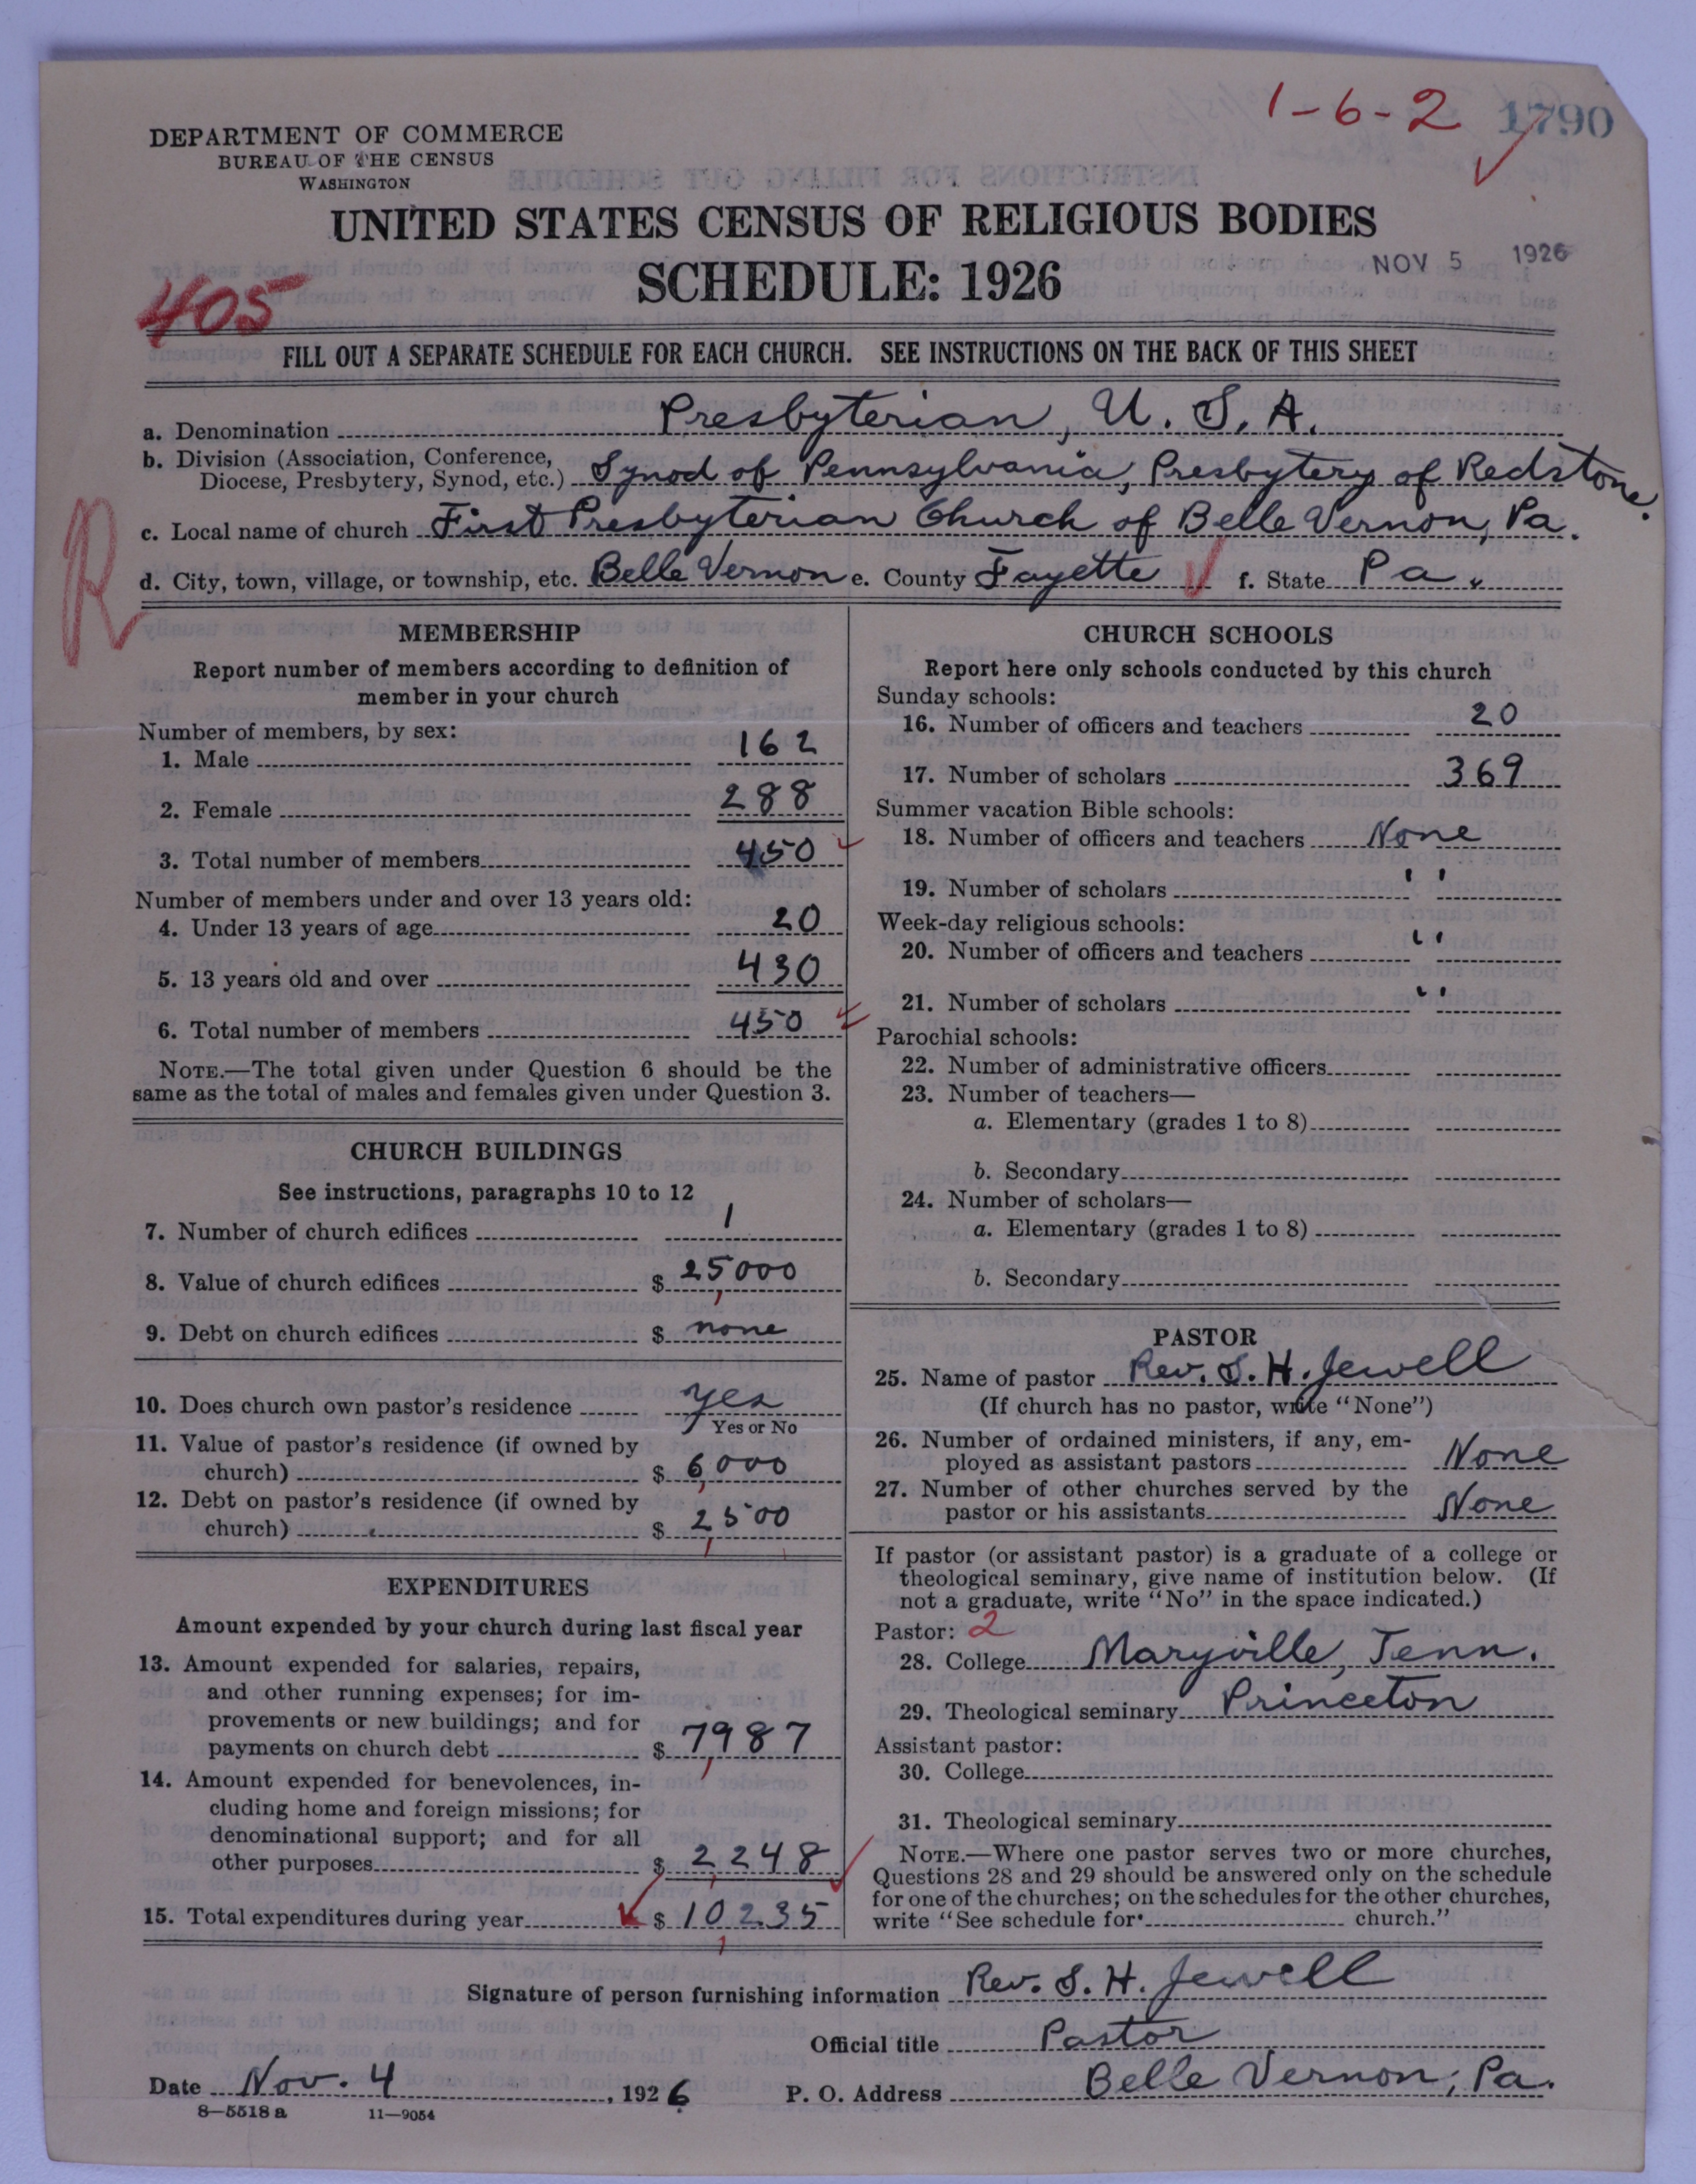 1-6-2 1790
DEPARTMENT OF COMMERCE
BUREAU OF THE CENSUS
WASHINGTON
UNITED STATES CENSUS OF RELIGIOUS BODIES
NOV 5 1926
SCHEDULE: 1926
405
FILL OUT A SEPARATE SCHEDULE FOR EACH CHURCH. SEE INSTRUCTIONS ON THE BACK OF THIS SHEET
a. Denomination Presbyterian, U. S. A.
b. Division (Association, Conference,
Diocese, Presbytery, Synod, etc.) Synod of Pennsylvania, Presbytery of Redstone.
c. Local name of church First Presbyterian Church of Belle Vernon, Pa.
R
d. City, town, village, or township, etc. Belle Vernon e. County Fayette f. State Pa.
MEMBERSHIP
Report number of members according to definition of
member in your church
Number of members, by sex:
1. Male 162
2. Female 288
3. Total number of members 450
Number of members under and over 13 years old:
4. Under 13 years of age 20
5. 13 years old and over 430
6. Total number of members 450
NOTE.—The total given under Question 6 should be the
same as the total of males and females given under Question 3.
CHURCH BUILDINGS
See instructions, paragraphs 10 to 12
7. Number of church edifices 1
8. Value of church edifices $ 25,000
9. Debt on church edifices $ none
10. Does church own pastor's residence yes
Yes or No
11. Value of pastor's residence (if owned by
church) $ 6,000
12. Debt on pastor's residence (if owned by
church) $ 2,500
EXPENDITURES
Amount expended by your church during last fiscal year
13. Amount expended for salaries, repairs,
and other running expenses; for im-
provements or new buildings; and for
payments on church debt $ 7,987
14. Amount expended for benevolences, in-
cluding home and foreign missions; for
denominational support; and for all
other purposes $ 2,248
15. Total expenditures during year $ 10,235
CHURCH SCHOOLS
Report here only schools conducted by this church
Sunday schools:
16. Number of officers and teachers 20
17. Number of scholars 369
Summer vacation Bible schools:
18. Number of officers and teachers None
19. Number of scholars "
Week-day religious schools:
20. Number of officers and teachers "
21. Number of scholars "
Parochial schools:
22. Number of administrative officers
23. Number of teachers—
a. Elementary (grades 1 to 8)
b. Secondary
24. Number of scholars—
a. Elementary (grades 1 to 8)
b. Secondary
PASTOR
25. Name of pastor Rev. S. H. Jewell
(If church has no pastor, write "None")
26. Number of ordained ministers, if any, em-
ployed as assistant pastors None
27. Number of other churches served by the
pastor or his assistants None
If pastor (or assistant pastor) is a graduate of a college or
theological seminary, give name of institution below. (If
not a graduate, write "No" in the space indicated.)
Pastor: 2
28. College Maryville, Tenn.
29. Theological seminary Princeton
Assistant pastor:
30. College
31. Theological seminary
NOTE.—Where one pastor serves two or more churches,
Questions 28 and 29 should be answered only on the schedule
for one of the churches; on the schedules for the other churches,
write "See schedule for church."
Signature of person furnishing information Rev. S. H. Jewell
Official title Pastor
Date Nov. 4, 1926 P. O. Address Belle Vernon, Pa.
8—5518 a 11—9054